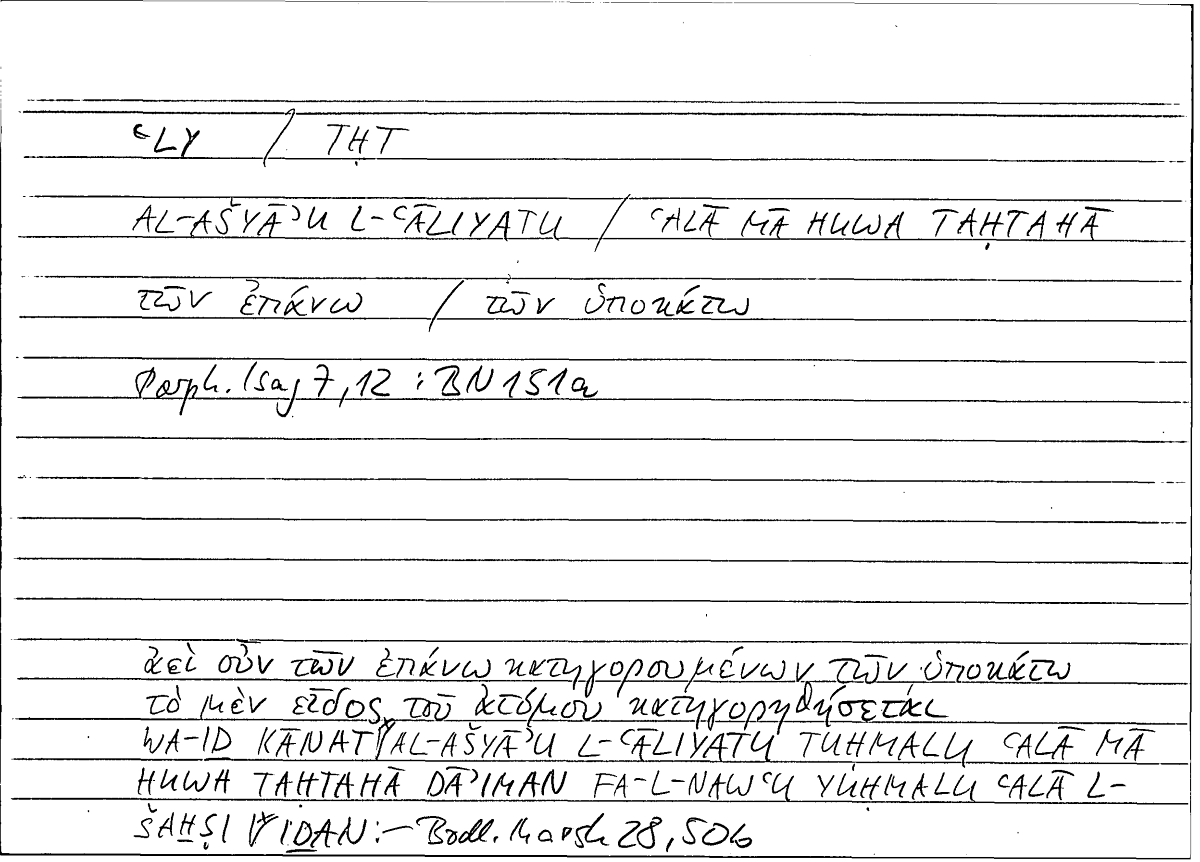 ʿLY / TḤT
AL-AŠYĀʾU L-ʿĀLIYATU / ʿALĀ MĀ HUWA TAḤTAHĀ
τῶν ἐπάνω / τῶν ὑποκάτω
Porph. Isag 7,12 : BN 151a
ἀεὶ οὖν τῶν ἐπάνω κατηγορουμένων τῶν ὑποκάτω
τὸ μὲν εἶδος τοῦ ἀτόμου κατηγορηθήσεται
WA-ID KĀNAT AL-AŠYĀʾU L-ʿĀLIYATU TUḤMALU ʿALĀ MĀ
HUWA TAḤTAHĀ DĀʾIMAN FA-L-NAWʿU YUḤMALU ʿALĀ L-
ŠAḪṢI IḎAN :— Bodl. Marsh 28, 50b